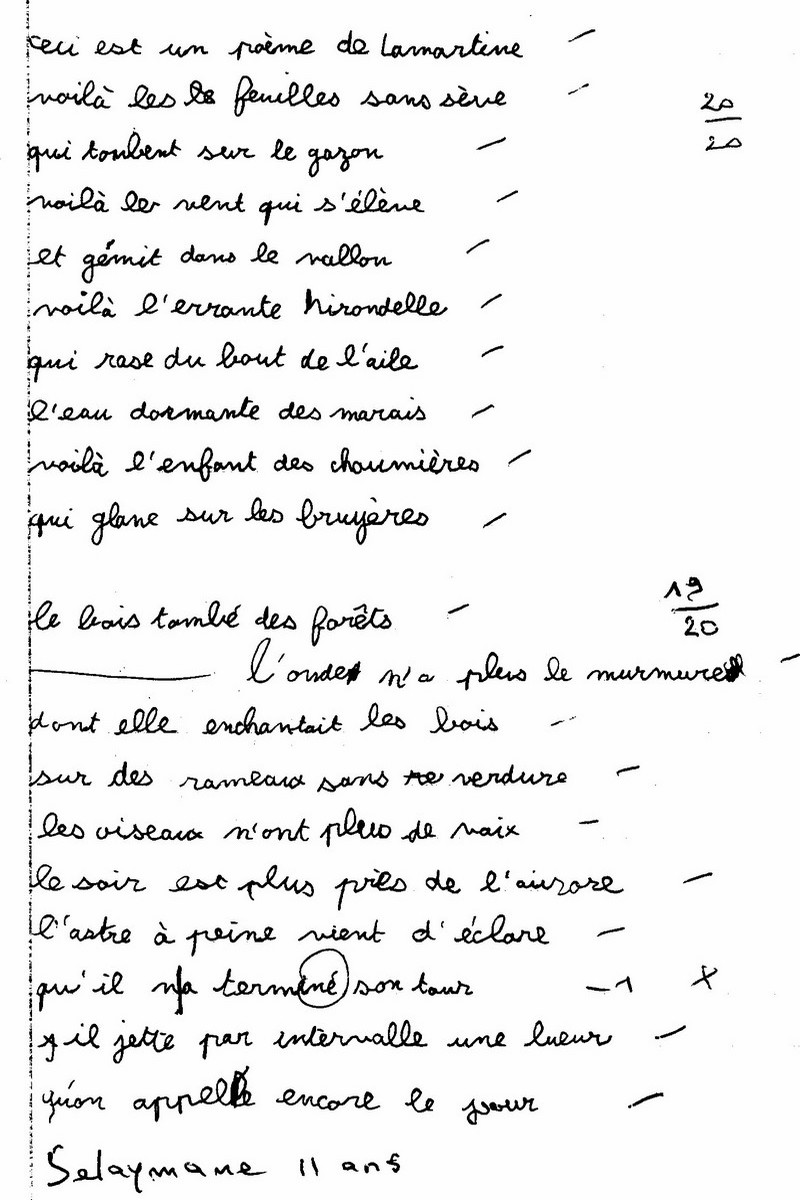 ceci est un poème de Lamartine
voilà les feuilles sans sève
20
20
qui tombent sur le gazon
voilà le vent qui s'élève
et gémit dans le vallon
voilà l'errante hirondelle
qui rase du bout de l'aile
l'eau dormante des marais
voilà l'enfant des choumières
qui glane sur les bruyères
le bois tombé des forêts
19
20
l'onde n'a plus le murmure
dont elle enchantait les bois
sur des rameaux sans verdure
les oiseaux n'ont plus de voix
le soir est plus près de l'aurore
l'astre à peine vient d'éclore
qu'il a terminé son tour -1 x
il jette par intervalle une lueur
qu'on appelle encore le jour
Selaymane 11 ans